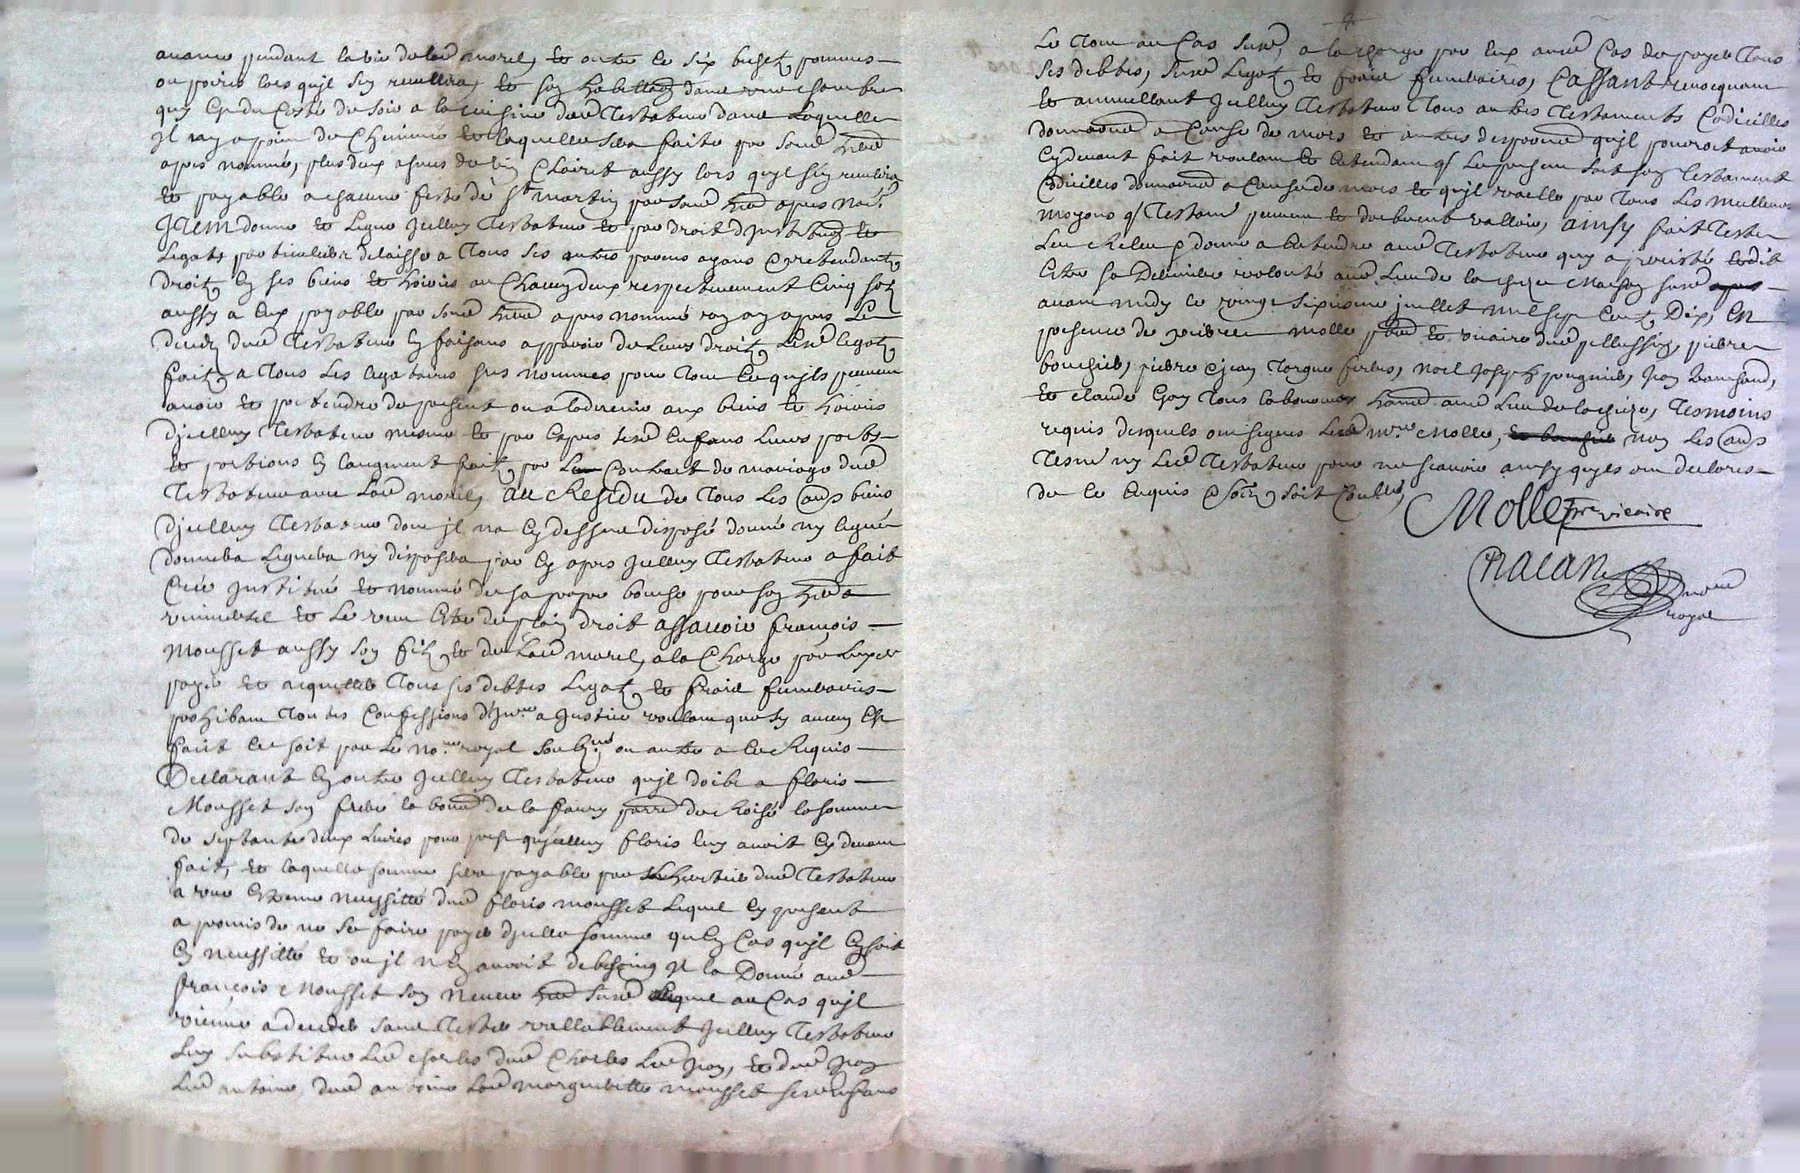 avance pendant la vie de lad morel, et outre ce six bichet pommes
ou poires lors qu'jl s'en recullira, et son habittaon dans une chambre
quy est du costé du soir a la cuisine dud Testateur dans laquelle
jl n'a point de cheminée et laquelle sera faite par sond hered
apres nommé, plus deux asnees de vin clairet aussy lors qu'jl s'en reculira
et payable a chacune feste de st martin par sond hered apres no.é
JTEM donne et legue jcelluy Testateur et par droit d'jnstitution et
legats particulier delaisse a tous ses autres parens ayans et pretendants
droit en ses biens et hoirie au chacun d'eux respectivement cinq solz
aussy a eux payable par sond hered apres nommé
deces dud Testateur en faisans apparoir de leurs droits, lesd legats
faits a tous les legataires sus nommés pour tout ce qu'jls peuvent
avoir et pretendre de present ou a l'advenir aux biens et hoirie
d'jcelluy Testateur mesme et par expres sesd enfans leurs parts
et portions en l'augment fait par le contract de mariage dud
Testateur avec lad morel, AU RESIDU de tous les aus biens
d'jcelluy Testateur dont jl n'a cy dessus disposé donné ny legué
donnera leguera ny disposera par cy apres jcelluy Testateur a fait
creé jnstitué et nommé de sa propre bouche pour son hered
universel et le veut estre de plain droit assavoir françois
Mousset aussy son filz et de lad morel, a la charge par luy de
payer et acquitter tous ses debtes legatz et frais funeraires
prohibant toutes confessions d'jnre a justice voulant que sy aucun est
fait ce soit par le nore royal soubsné ou autre a ce requis
Declarant en outre jcelluy Testateur qu'jl doibt a floris
Mousset son frere labour de la faury parr de choisé la somme
de septante deux livres pour prest qu'jcelluy floris luy avoit cy devant
fait, et laquelle somme sera payable par son heritier dud Testateur
a une extreme necessitté dud floris mousset lequel cy present
a promis de ne se faire payer d'jcelle somme qu'en cas qu'jl en soit
en necessitté et ou jl n'en auroit de besoing jl la donne aud
françois Mousset son neveu hered susd lequel au cas qu'jl
vienne a deceder sans tester vallablement jcelluy Testateur
luy substitue led charles dud charles led jean, et dud jean
led antoine, dud antoine lad margueritte mousset sesd enfans
Le tout au cas susd, a la charge par eux aud cas de payer tous
ses debtes, susd legatz et frais funeraires, CASSANT revoquant
et annullant jcelluy Testateur tous autres testaments codicilles
donnaons a cause de mort et autres dispoons qu'jl pourroit avoir
cy devant fait voulant et entendant q le present soit son testament
codicilles donnaon a cause de mort et qu'jl vaille par tous les meilleurs
moyens q testamt peuvent et doibvent valloir, AINSY fait tester
leu releu et donné a entendre aud Testateur quy a persisté et dit
estre sa derniere volonté aud lieu de la chize maison susd apres
avant midy le vingt sixieme juillet mil sept cent dix, EN
presence de pierre molle pbre et vicaire dud pellussin, pierre
bouchié, pierre et jean torgue freres, noel joseph pugniet, jean bauchand,
et claude gay tous laboureurs hants aud lieu de la chize, tesmoins
requis desquels ont signes led mre Molle, non les aus
tesns ny led Testateur pour ne scavoir ainsy qu'jls ont declarés
de ce enquis et soit coullé
Molle pre vicaire
Chalan nore
royal